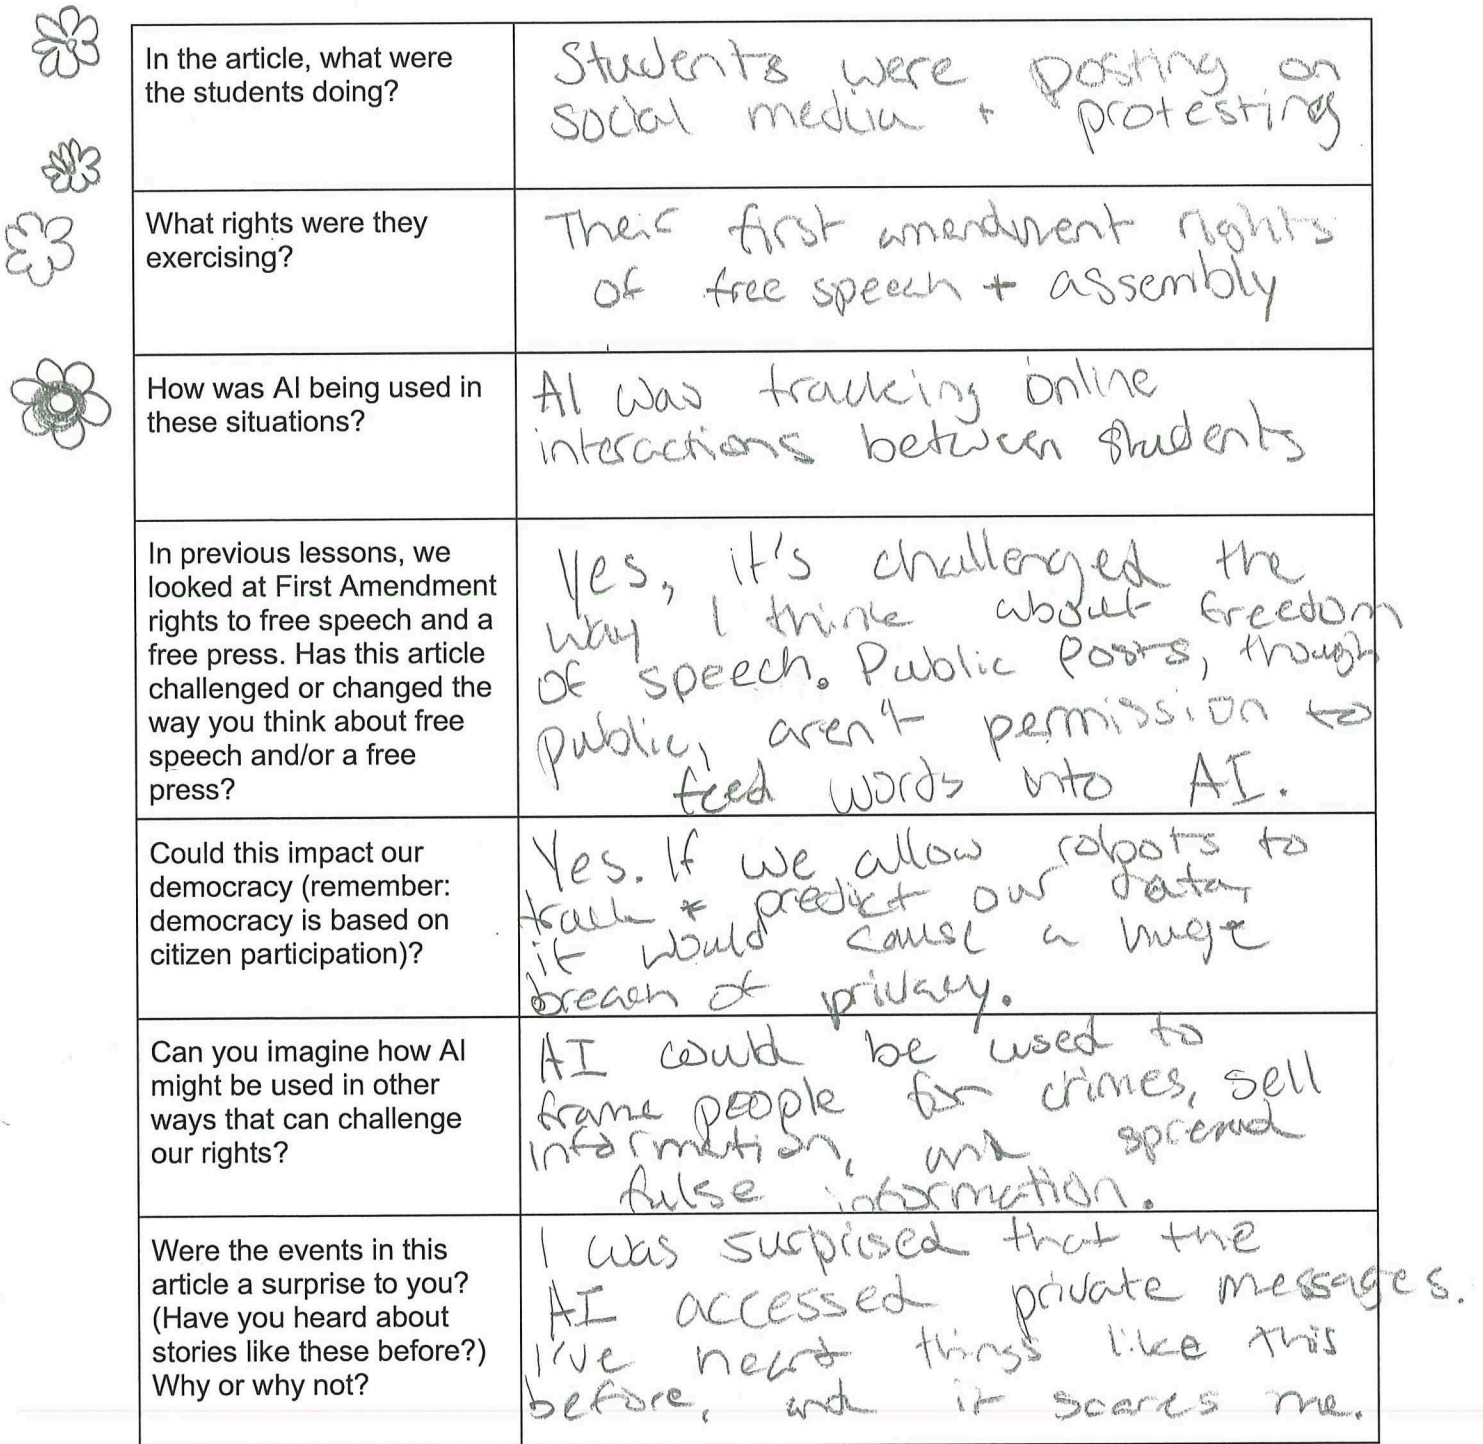 In the article, what were
the students doing?
Students were posting on
social media + protesting
What rights were they
exercising?
Their first amendment rights
of free speech + assembly
How was AI being used in
these situations?
AI was tracking online
interactions between students
In previous lessons, we
looked at First Amendment
rights to free speech and a
free press. Has this article
challenged or changed the
way you think about free
speech and/or a free
press?
Yes, it's challenged the
way I think about freedom
of speech. Public Posts, though
public, aren't permission to
feed words into AI.
Could this impact our
democracy (remember:
democracy is based on
citizen participation)?
Yes. If we allow robots to
track + predict our data,
it would cause a huge
breach of privacy.
Can you imagine how AI
might be used in other
ways that can challenge
our rights?
AI could be used to
frame people for crimes, sell
information, and spread
false information.
Were the events in this
article a surprise to you?
(Have you heard about
stories like these before?)
Why or why not?
I was surprised that the
AI accessed private messages.
I've heard things like this
before, and it scares me.